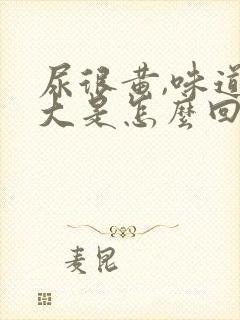 尿很黄,味道
大是怎麽回
麦昆